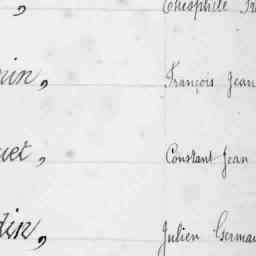 , Théophile
uin, François Jean
uet, Constant Jean
din, Julien Germain